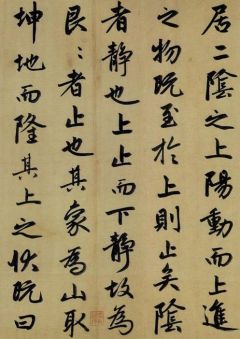 居二陰之上陽動而上進
之物既至於上則止矣陰
者靜也上止而下靜故為
艮:者止也其象為山取
坤地而隆其上之狀既曰